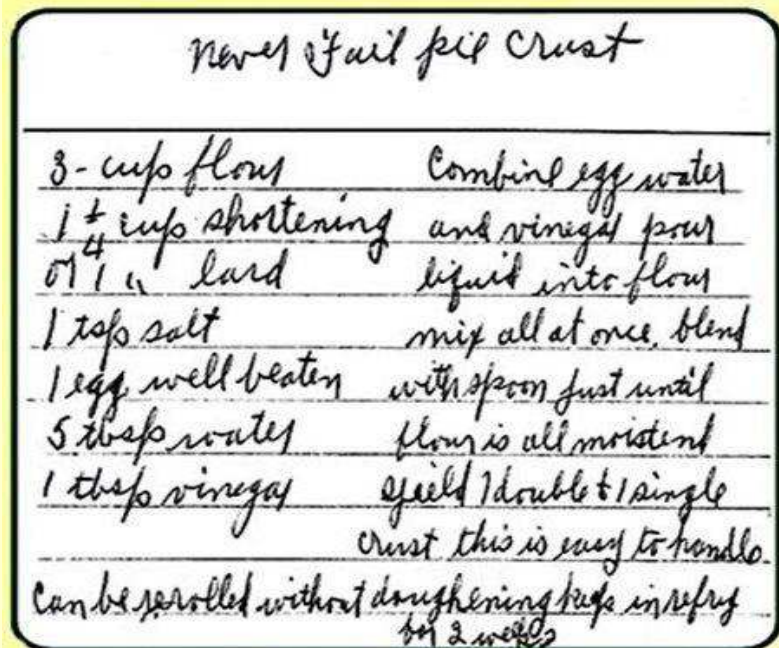 Never Fail pie Crust
3 - cup flour
1 1/4 cup shortening
or 1 " lard
1 tsp salt
1 egg well beaten
5 tbsp water
1 tbsp vinegar
Combine egg water
and vinegar pour
liquid into flour
mix all at once, blend
with spoon just until
flour is all moistend
yield 1 double & 1 single
crust this is easy to handle
can be rerolled without toughening keeps in refrig
for 2 weeks